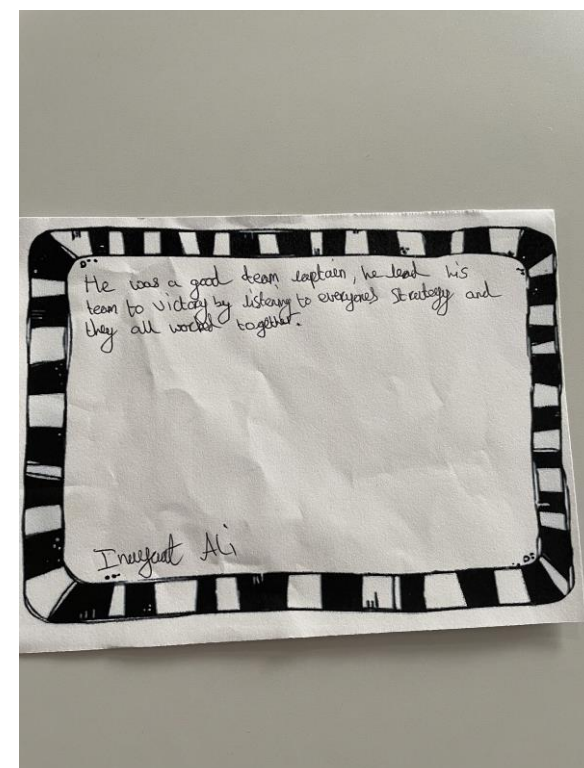 He was a good team captain, he lead his
team to victory by listening to everyones Strategy and
they all worked together.
Ali